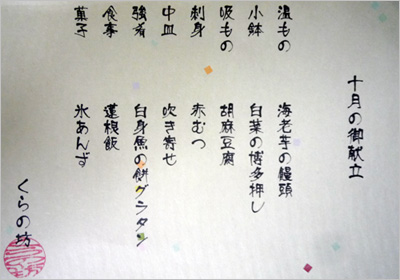 十月の御献立
温もの 海老芋の饅頭
小鉢 白菜の博多押し
吸もの 胡麻豆腐
刺身 赤むつ
中皿 吹き寄せ
強肴 白身魚の餅グラタン
食事 蓮根飯
菓子 氷あんず
くらの坊